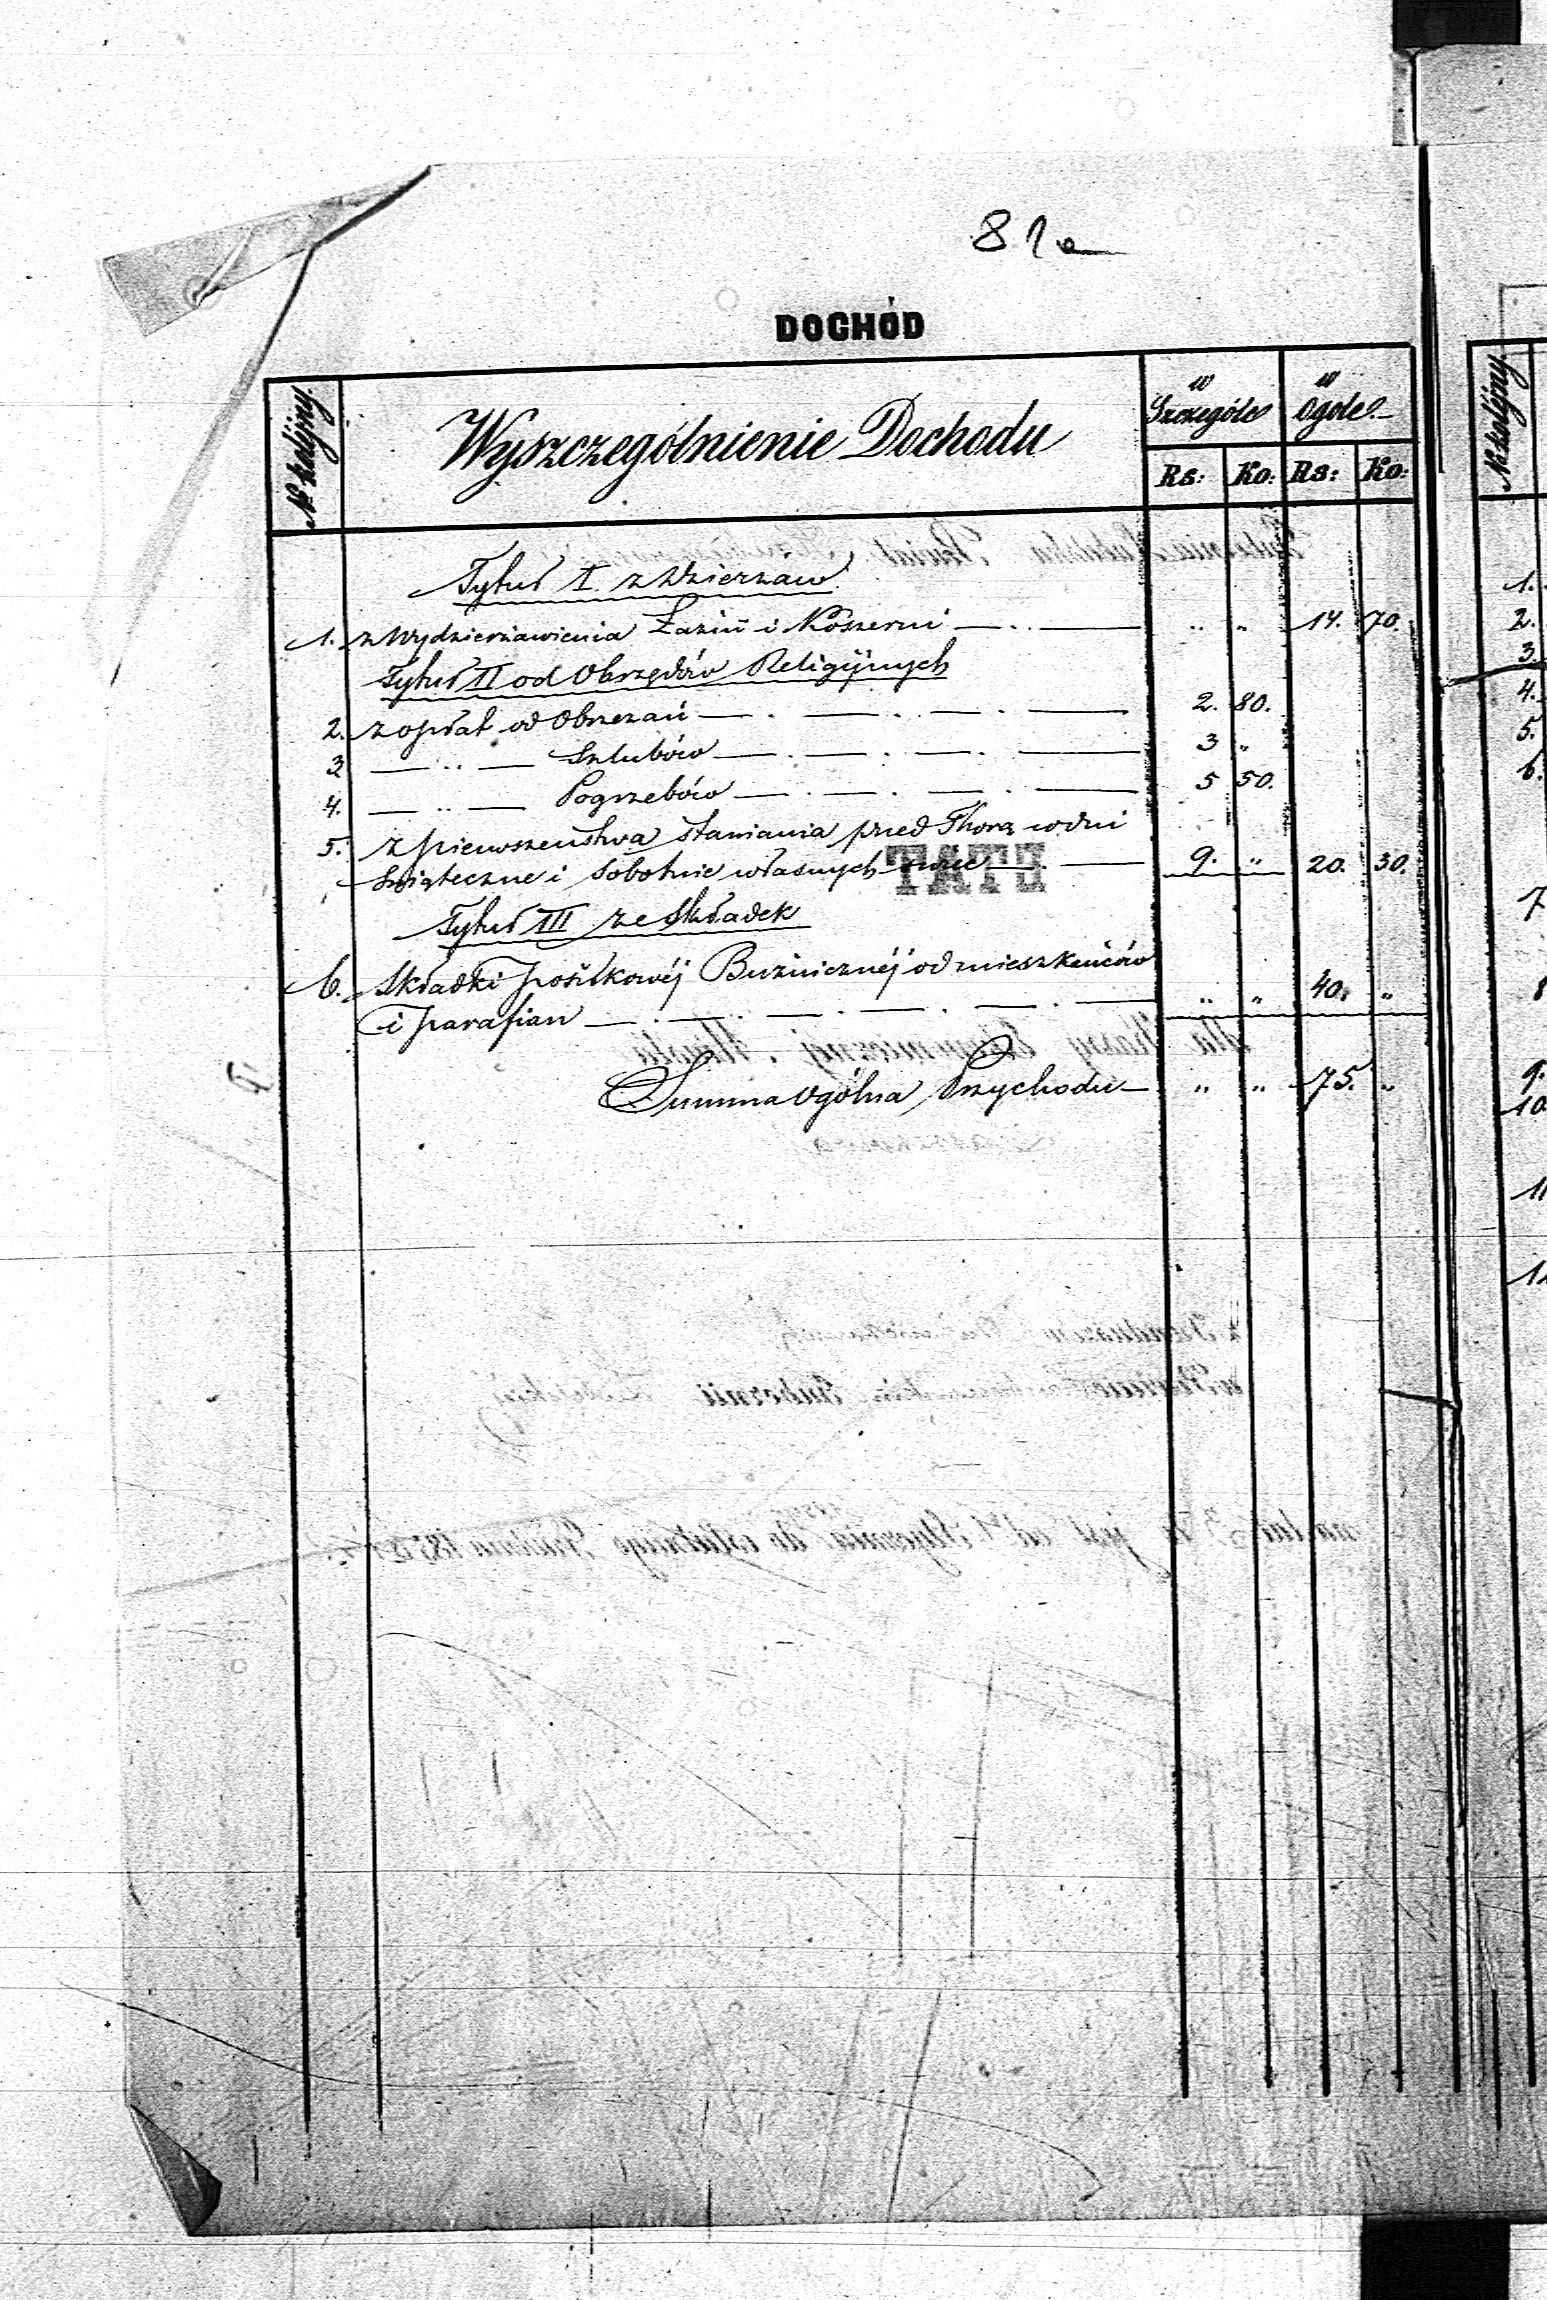 81a
DOCHÓD
№ kolejny.
Wyszczególnienie Dochodu
w Szczególe
w Ogóle.
Rs: Ko: Rs: Ko:
Tytuł I. z Dzierżaw
1. z Wydzierżawienia Łaźni i Koszerni — " " 14. 70.
Tytuł II od Obrzędów Religijnych
2. z opłat od Obrzezań — 2. 80.
3 — " — Szlubów — 3 "
4. — " — Pogrzebów — 5 50.
5. z pierwszeństwa stawania przed Thorą w dni
Świąteczne i Sobotnie własnych — 9. " 20. 30.
TATE
Tytuł III ze Składek
6. Składki posiłkowéj Bużnicznéj od mieszkańców
i parafian — " " 40. "
Summa ogólna Przychodu — " " 75. "
№ kolejny.
1.
2.
3.
4.
5.
6.
7
8
9.
10
11